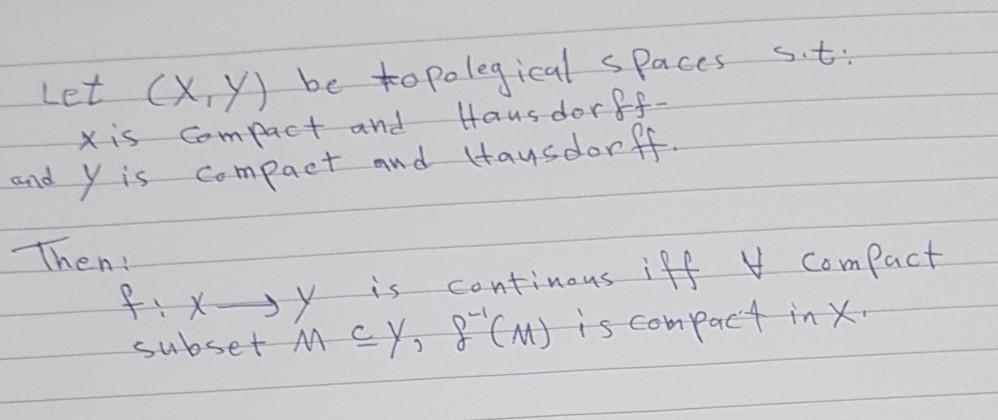 Let (X,Y) be topolegical spaces s.t:
X is compact and Hausdorff-
and Y is compact and Hausdorff.
Then:
f: X → Y is continous iff ∀ compact
subset M ⊆ Y, f⁻¹(M) is compact in X.